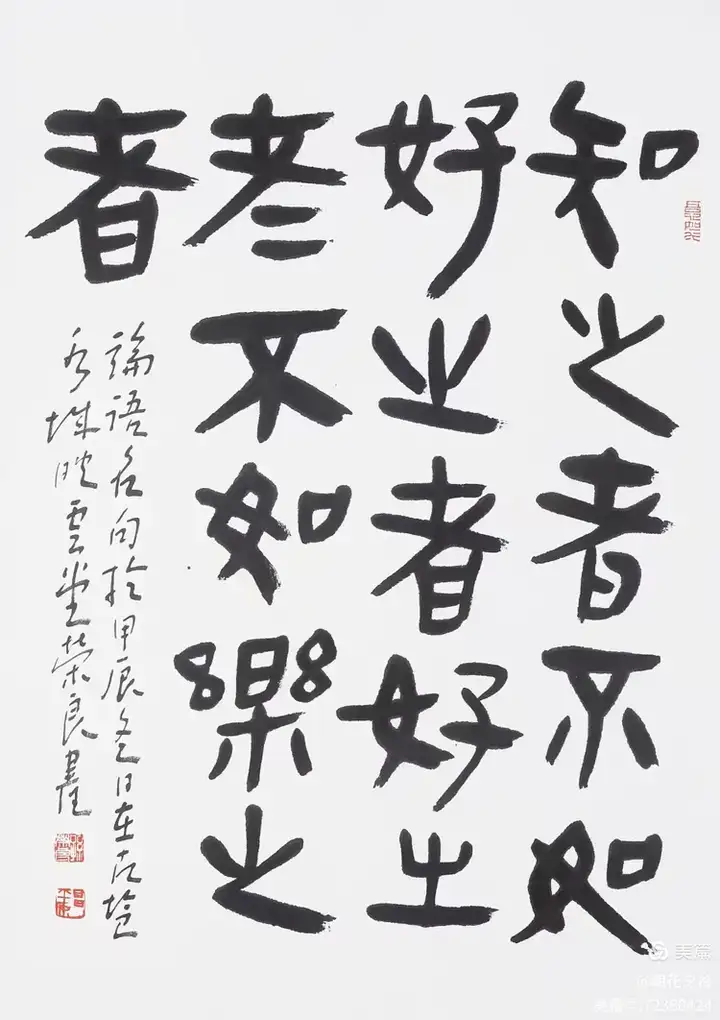 知之者不如
好之者好之
者不如樂之
者
論語名句於甲辰冬日在古塩
城映雲堂榮良書
美篇